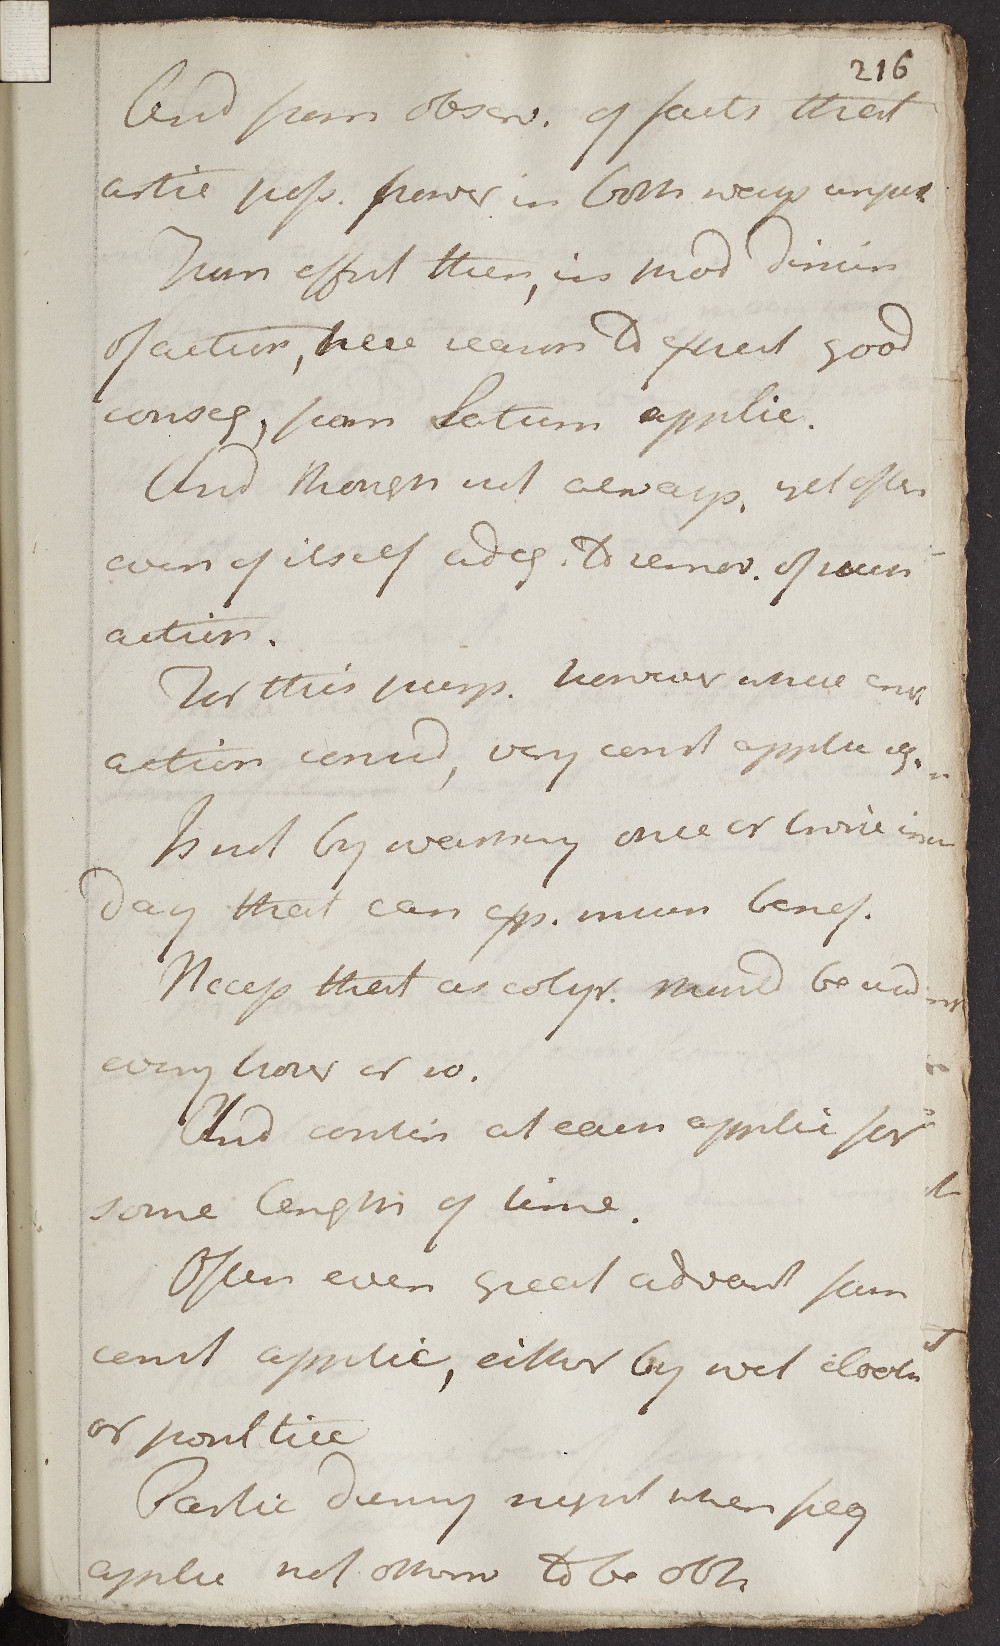 216
And from observ. of facts that
artic poss. power in both ways unquest
From effect then, in mod dimin
of action, here reason to expect good
conseq, from Saturn applic.
And though not always, yet often
even of itself adeq. to remov. of
action.
For this purp. however where
action consid, very const applic
Is not by washing once or twice in
day that can exp. much benef.
Necess that as colyr. should be
every hour or so.
And contin at each applic for
some length of time.
Often even great advant from
const applic, either by wet cloth
or poultice
Partic during night when freq
applic not otherw to be obt